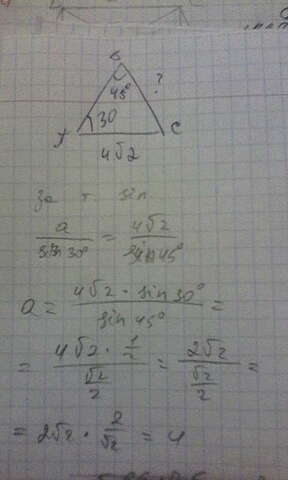 B
45°
?
30
A
C
4√2
за т sin
a / sin 30° = 4√2 / sin 45°
a = 4√2 · sin 30° / sin 45° =
= 4√2 · 1/2 / √2/2 = 2√2 / √2/2 =
= 2√2 · 2/√2 = 4